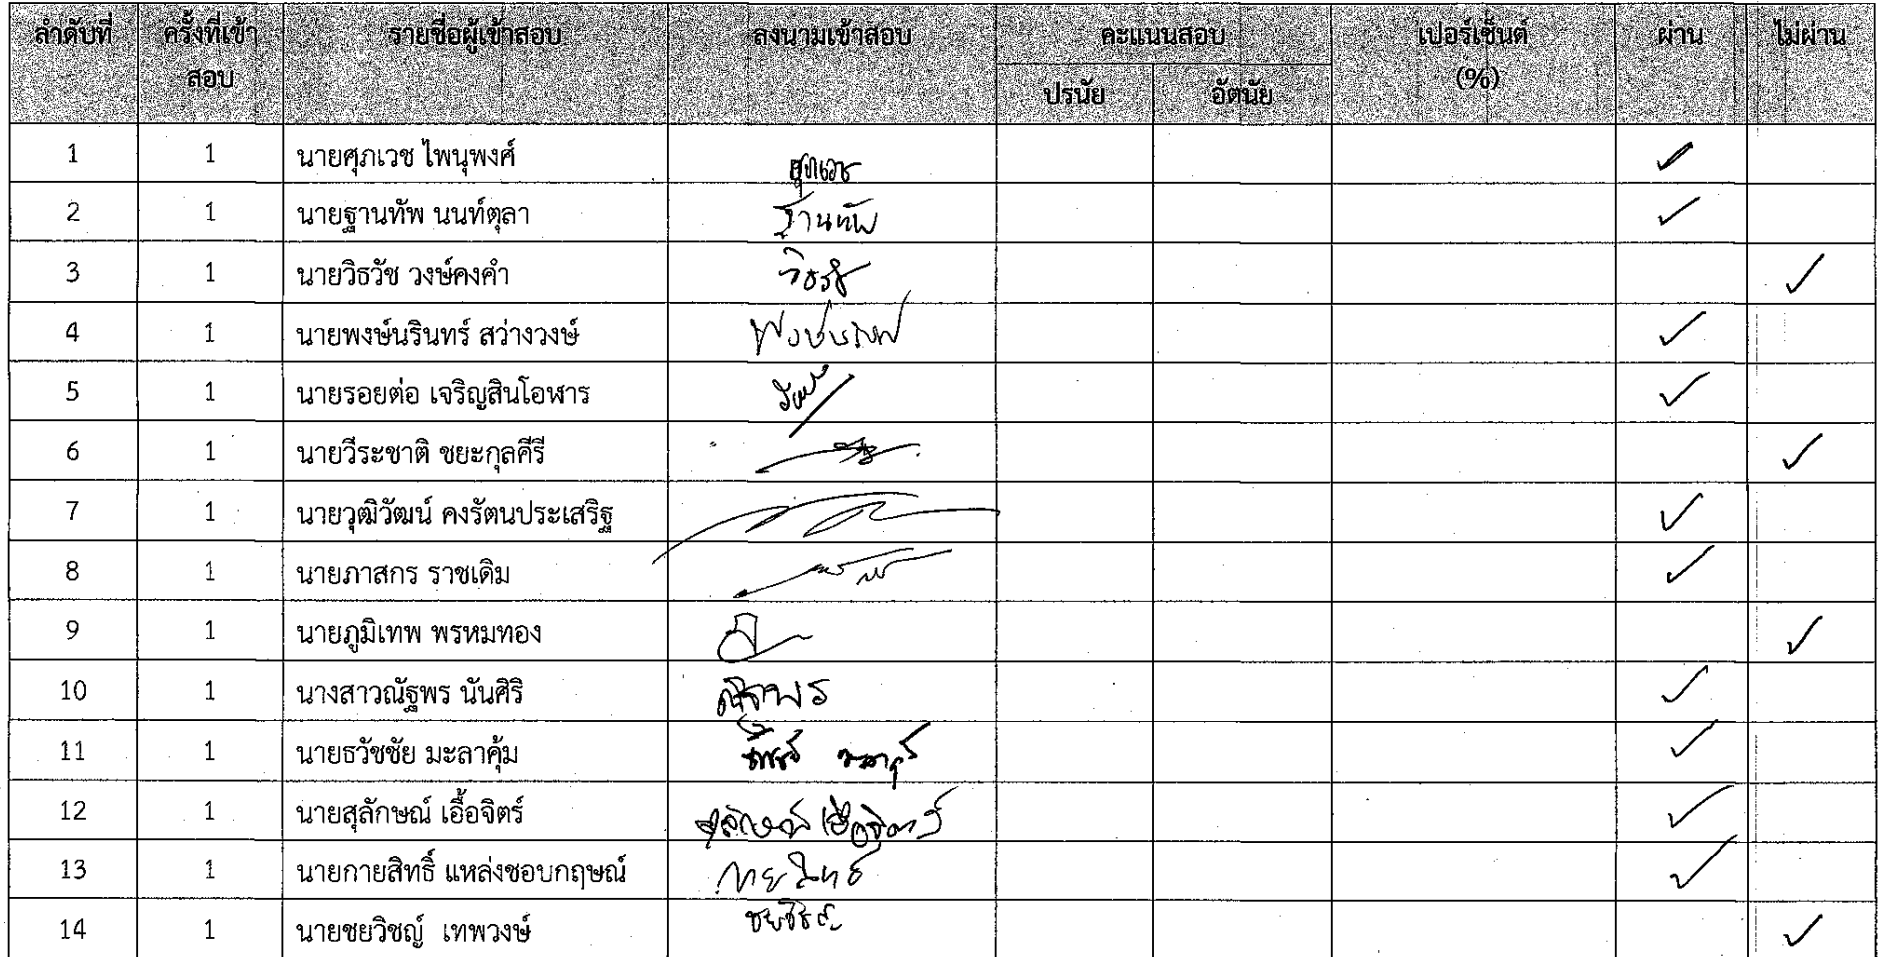 ลำดับที่ ครั้งที่เข้าสอบ รายชื่อผู้เข้าสอบ ลงนามเข้าสอบ คะแนนสอบ เปอร์เซ็นต์ (%) ผ่าน ไม่ผ่าน
ปรนัย อัตนัย
1 1 นายศุภเวช ไพนุพงศ์ ศุภเวช ✓
2 1 นายฐานทัพ นนท์ตุลา ฐานทัพ ✓
3 1 นายวิธวัช วงษ์คงคำ ✓
4 1 นายพงษ์นรินทร์ สว่างวงษ์ ✓
5 1 นายรอยต่อ เจริญสินโอฬาร ✓
6 1 นายวีระชาติ ชยะกุลคีรี ✓
7 1 นายวุฒิวัฒน์ คงรัตนประเสริฐ ✓
8 1 นายภาสกร ราชเดิม ✓
9 1 นายภูมิเทพ พรหมทอง ✓
10 1 นางสาวณัฐพร นันศิริ ณัฐพร ✓
11 1 นายธวัชชัย มะลาคุ้ม ✓
12 1 นายสุลักษณ์ เอื้อจิตร์ สุลักษณ์ เอื้อจิตร์ ✓
13 1 นายกายสิทธิ์ แหล่งชอบกฤษณ์ กายสิทธิ์ ✓
14 1 นายชยวิชญ์ เทพวงษ์ ชยวิชญ์ ✓